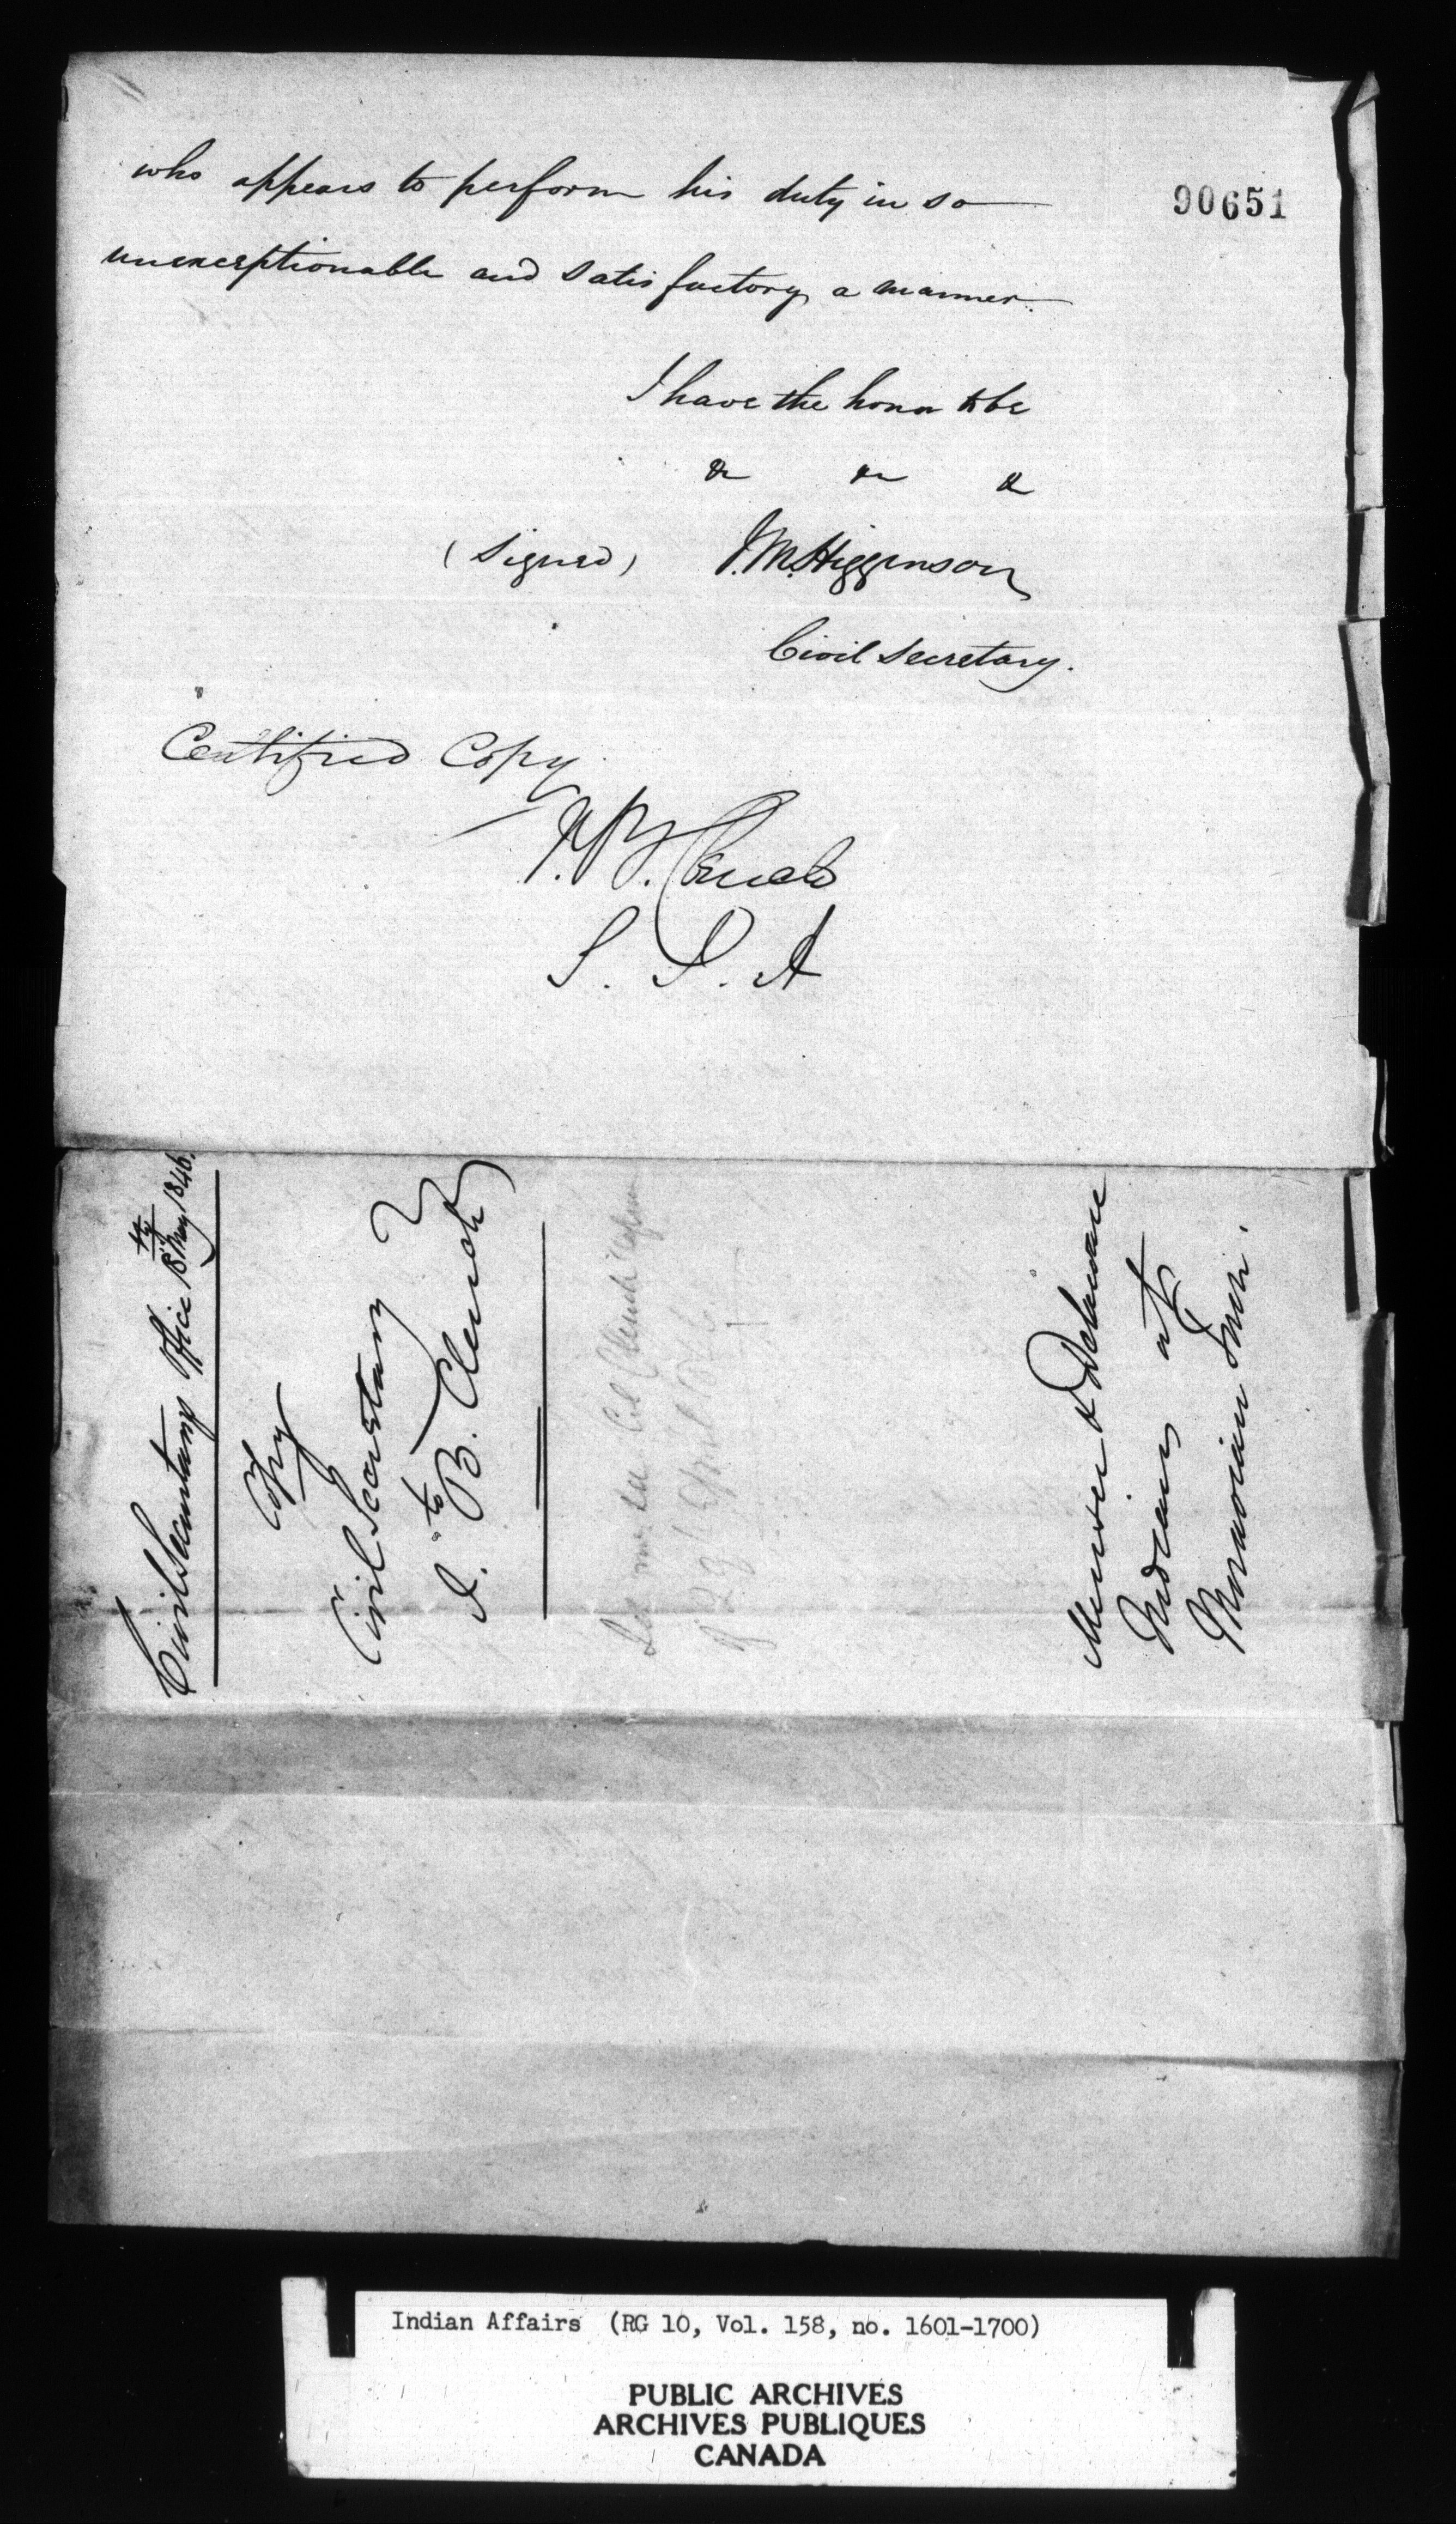 90651
who appears to perform his duty in so
unexceptionable and satisfactory a manner.
I have the honor to be
&c &c &c
(Signed) J. M. Higginson
Civil Secretary.
Certified Copy
J. B. Clench
S. I. A
Civil Secretarys Office 18th May 1846.
Copy
Civil Secretary
to
J. B. Clench
Col Clench
of April
Munsee & Delaware
Indians at
Moravian Town.
Indian Affairs (RG 10, Vol. 158, no. 1601-1700)
PUBLIC ARCHIVES
ARCHIVES PUBLIQUES
CANADA